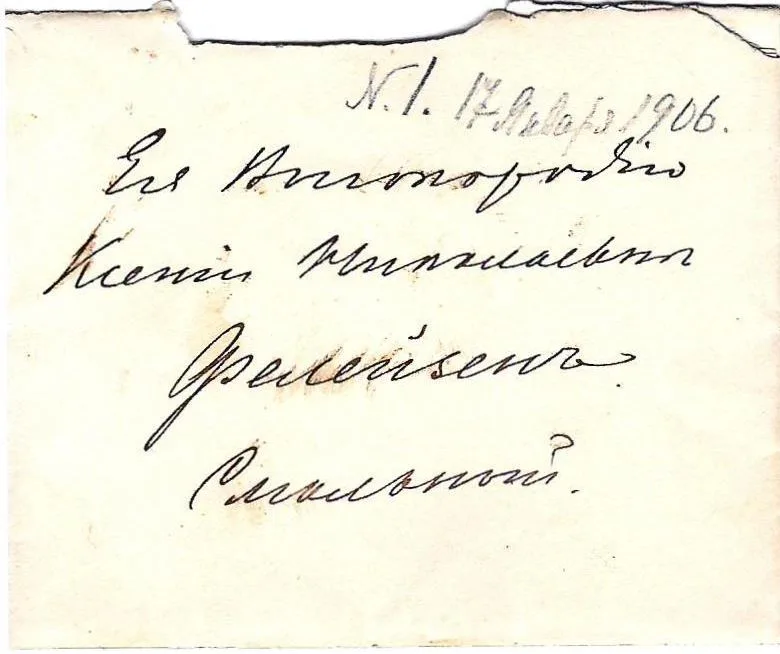 N. 1. 17 Января 1906.
Ея Высокородію
Ксеніи Николаевнѣ
Фелейзенъ
Смольный.